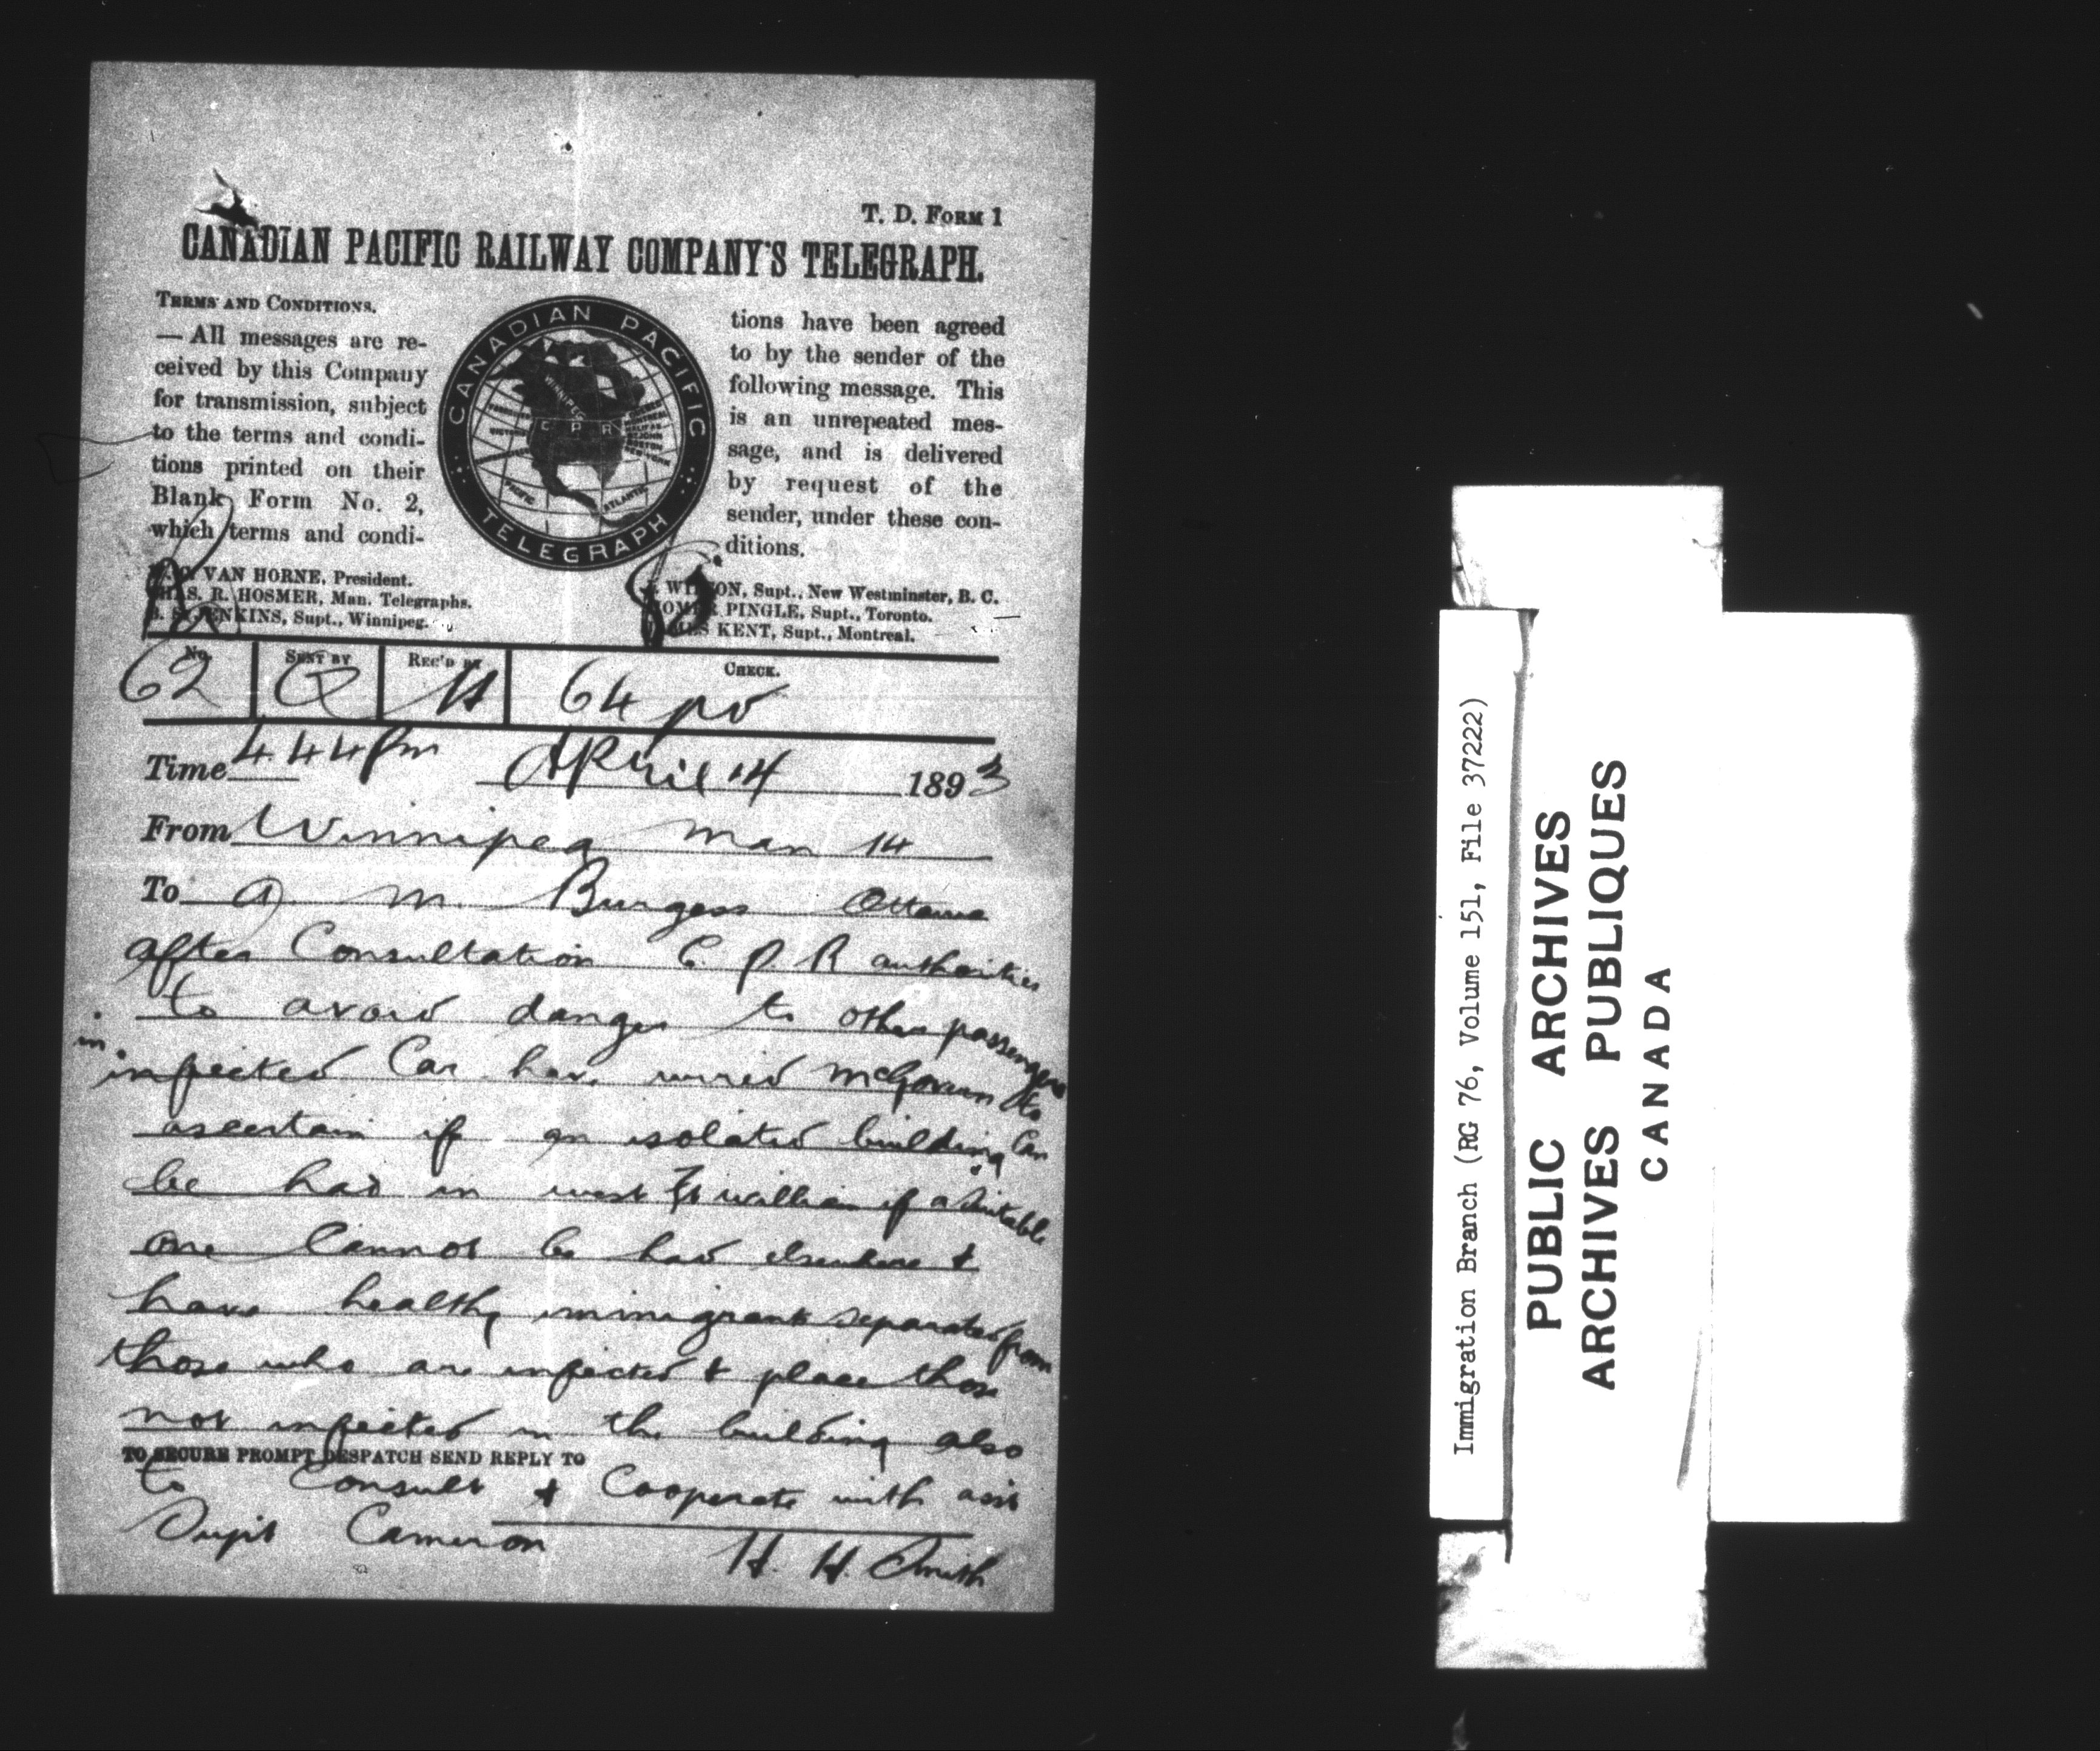 T. D. FORM 1
CANADIAN PACIFIC RAILWAY COMPANY'S TELEGRAPH.
TERMS AND CONDITIONS.
— All messages are re-
ceived by this Company
for transmission, subject
to the terms and condi-
tions printed on their
Blank Form No. 2,
which terms and condi-
CANADIAN PACIFIC
TELEGRAPH
WINNIPEG
C P R
PACIFIC
ATLANTIC
tions have been agreed
to by the sender of the
following message. This
is an unrepeated mes-
sage, and is delivered
by request of the
sender, under these con-
ditions.
VAN HORNE, President.
R. HOSMER, Man. Telegraphs.
JENKINS, Supt., Winnipeg.
Supt., New Westminster, B. C.
PINGLE, Supt., Toronto.
KENT, Supt., Montreal.
No. SENT BY REC'D BY CHECK.
62 64
Time 4.44pm April 14 1893
From Winnipeg Man 14
To A. M. Burgess Ottawa
after Consultation C. P. R authorities
to avoid danger to other passengers
in
infected Car have wired McGovern to
ascertain if an isolated building Can
be had in west Ft william if a suitable
one Cannot be had elsewhere &
have healthy immigrants separated from
those who are infected & place those
not infected in the building also
TO SECURE PROMPT DESPATCH SEND REPLY TO
to Consult & Cooperate with asst
Supt Cameron
H. H. Smith
Immigration Branch (RG 76, Volume 151, File 37222)
PUBLIC ARCHIVES
ARCHIVES PUBLIQUES
CANADA